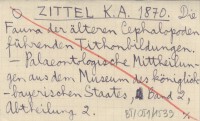 ZITTEL K.A. 1870. Die
Fauna der älteren Cephalopoden
führenden Tithonbildungen.
– Palaeontologische Mittheilun-
gen aus dem Museum des königlich-
-bayerischen Staates, Band 2,
Abtheilung 2.